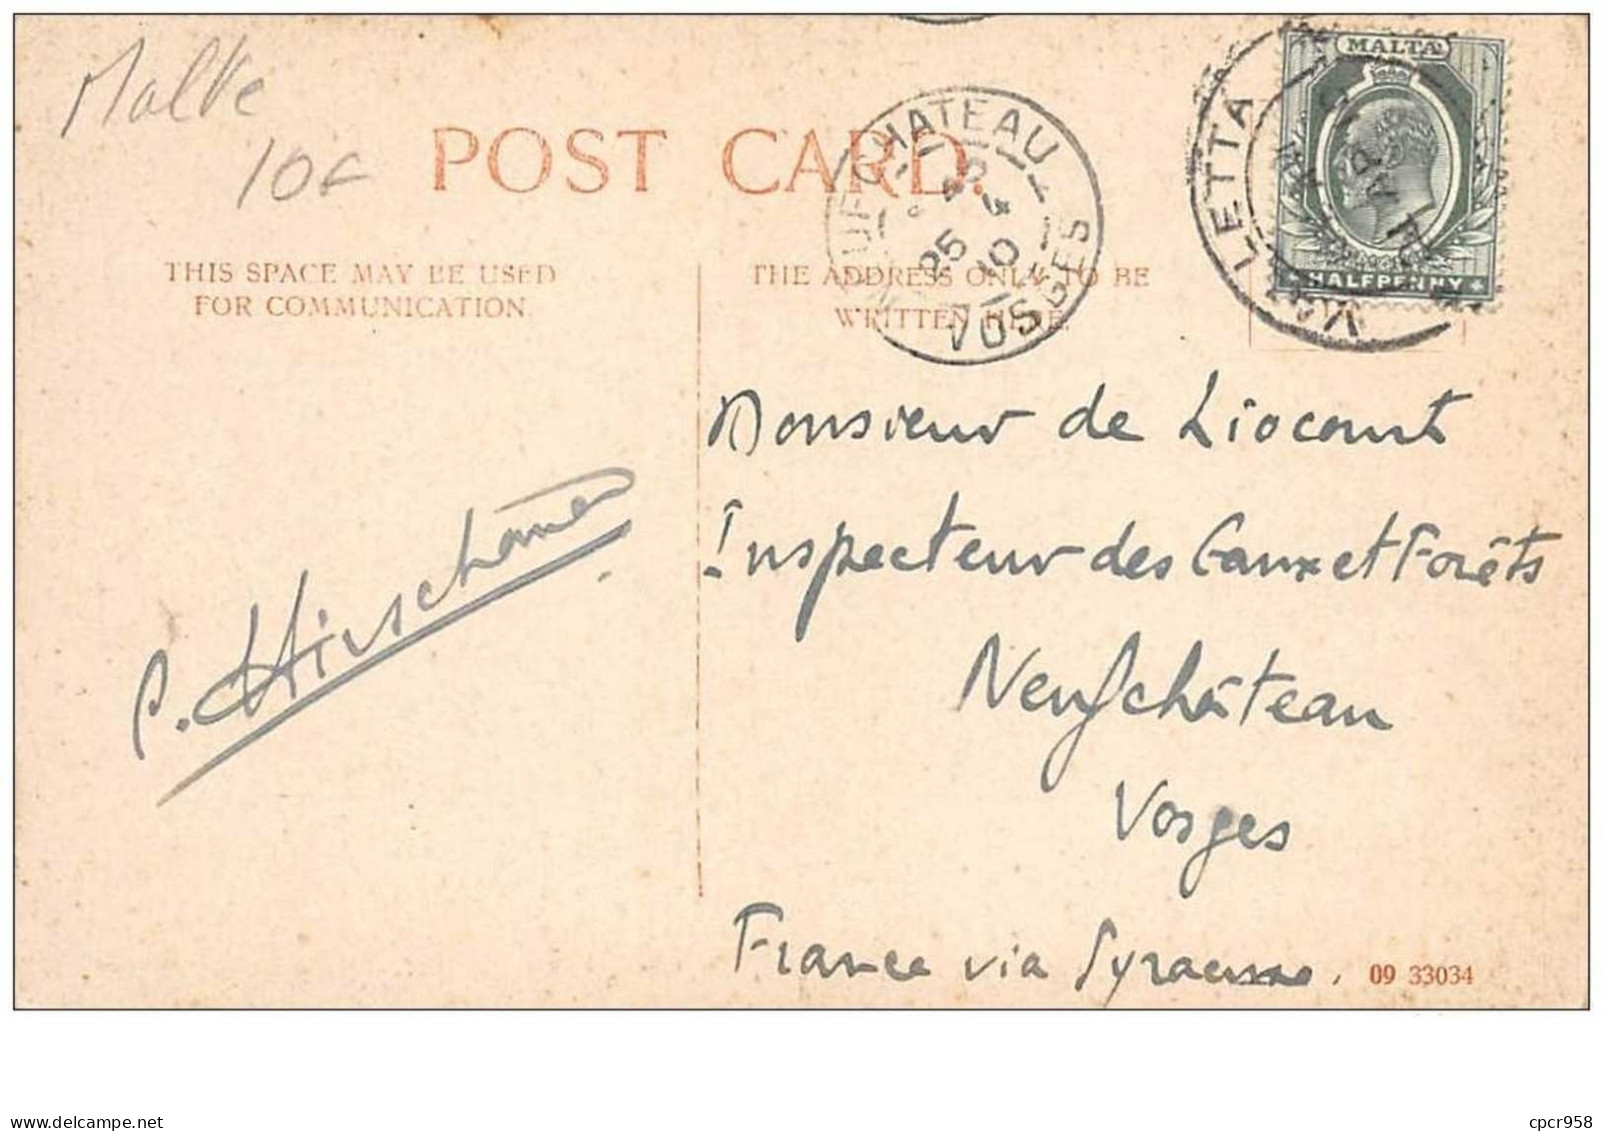 Malte
10F
POST CARD.
THIS SPACE MAY BE USED
FOR COMMUNICATION.
THE ADDRESS ONLY TO BE
WRITTEN HERE.
NEUFCHATEAU
25 4
10
VOSGES
VALLETTA
MALTA
HALFPENNY
Monsieur de Liocourt
Inspecteur des Eaux et Forêts
Neufchâteau
Vosges
France via Syracuse.
09 33034
cpcr958